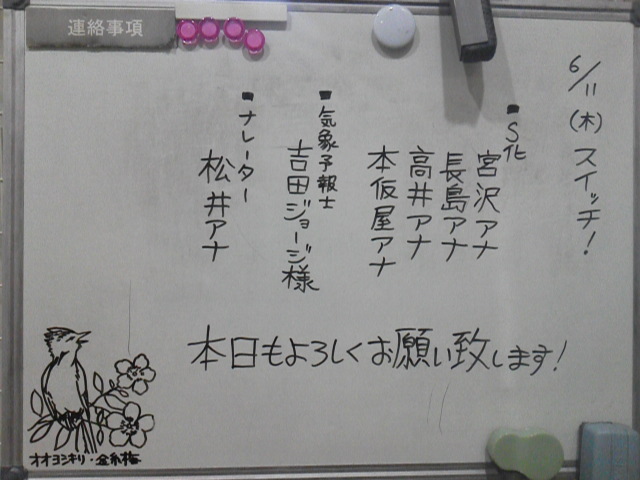 連絡事項
6/11(木)スイッチ!
■S化
宮沢アナ
長島アナ
高井アナ
本仮屋アナ
■気象予報士
吉田ジョージ様
■ナレーター
松井アナ
本日もよろしくお願い致します!
オオヨシキリ・金糸梅